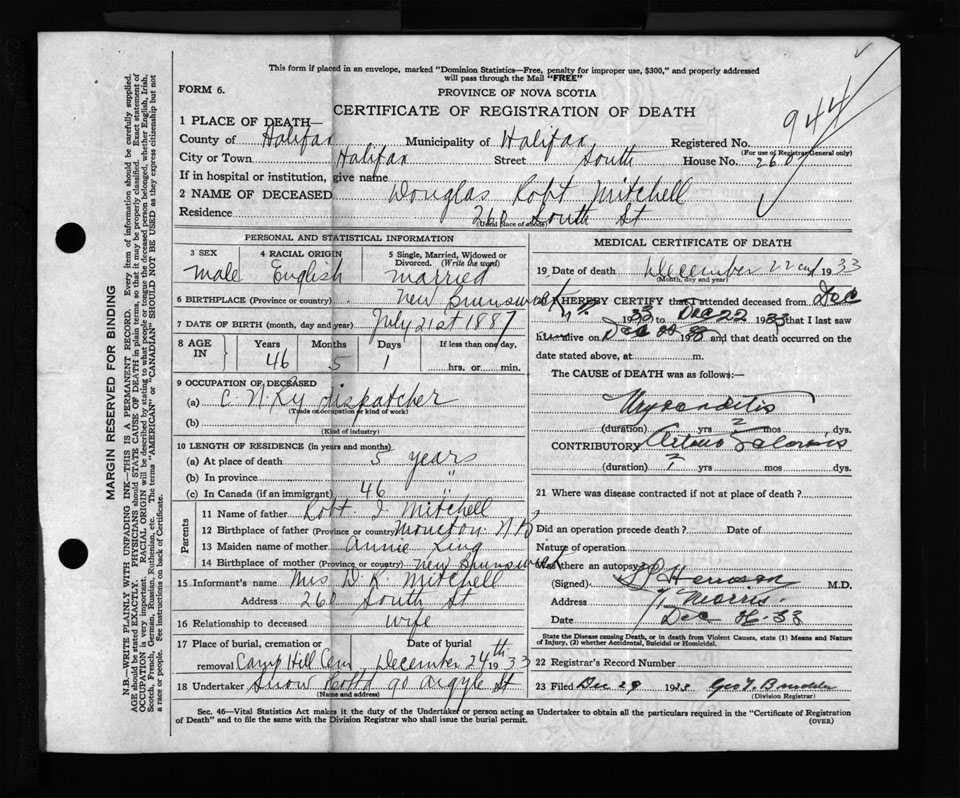 This form if placed in an envelope, marked "Dominion Statistics—Free, penalty for improper use, $300," and properly addressed
will pass through the Mail "FREE"
FORM 6.
PROVINCE OF NOVA SCOTIA
CERTIFICATE OF REGISTRATION OF DEATH
944
1 PLACE OF DEATH—
County of Halifax Municipality of Halifax Registered No.
(For use of Registrar General only)
City or Town Halifax Street South House No. 260
If in hospital or institution, give name
2 NAME OF DECEASED Douglas Robt Mitchell
Residence 260 South St
(Usual place of abode)
PERSONAL AND STATISTICAL INFORMATION
3 SEX 4 RACIAL ORIGIN 5 Single, Married, Widowed or Divorced. (Write the word)
Male English Married
6 BIRTHPLACE (Province or country) New Brunswick
7 DATE OF BIRTH (month, day and year) July 21st 1887
8 AGE IN Years Months Days If less than one day,
46 5 1 hrs. or min.
9 OCCUPATION OF DECEASED
(a) C N Ry dispatcher
(Trade or occupation or kind of work)
(b)
(Kind of industry)
10 LENGTH OF RESIDENCE (in years and months)
(a) At place of death 5 years
(b) In province "
(c) In Canada (if an immigrant) 46 "
Parents
11 Name of father Robt. J Mitchell
12 Birthplace of father (Province or country) Moncton N.B
13 Maiden name of mother Annie King
14 Birthplace of mother (Province or country) New Brunswick
15 Informant's name Mrs D. R. Mitchell
Address 260 South St
16 Relationship to deceased wife
17 Place of burial, cremation or removal Camp Hill Cem Date of burial December 24th 1933
18 Undertaker Snow 90 Argyle St
(Name and address)
MEDICAL CERTIFICATE OF DEATH
19 Date of death December 22nd 1933
(Month, day and year)
20 I HEREBY CERTIFY that I attended deceased from Dec
1933 to Dec 22 1933 that I last saw
h alive on Dec 193 and that death occurred on the
date stated above, at m.
The CAUSE of DEATH was as follows:—
Myocarditis
(duration) yrs 2 mos dys.
CONTRIBUTORY
(duration) ? yrs mos dys.
21 Where was disease contracted if not at place of death?
Did an operation precede death? Date of
Nature of operation
Was there an autopsy?
(Signed) M.D.
Address Morris
Date Dec 33
State the Disease causing Death, or in death from Violent Causes, state (1) Means and Nature
of Injury, (2) whether Accidental, Suicidal or Homicidal.
22 Registrar's Record Number
23 Filed Dec 29 1933
(Division Registrar)
Sec. 46—Vital Statistics Act makes it the duty of the Undertaker or person acting as Undertaker to obtain all the particulars required in the "Certificate of Registration
of Death" and to file the same with the Division Registrar who shall issue the burial permit.
(OVER)
MARGIN RESERVED FOR BINDING
N.B.—WRITE PLAINLY WITH UNFADING INK—THIS IS A PERMANENT RECORD. Every item of information should be carefully supplied.
AGE should be stated EXACTLY. PHYSICIANS should STATE CAUSE OF DEATH in plain terms, so that it may be properly classified. Exact statement of
OCCUPATION is very important. RACIAL ORIGIN will be described by stating to what people or tongue the deceased person belonged, whether English, Irish,
Scotch, French, German, Russian, Ruthenian, etc. The terms "AMERICAN" or "CANADIAN" SHOULD NOT BE USED as they express citizenship but not
a race or people. See instructions on back of Certificate.